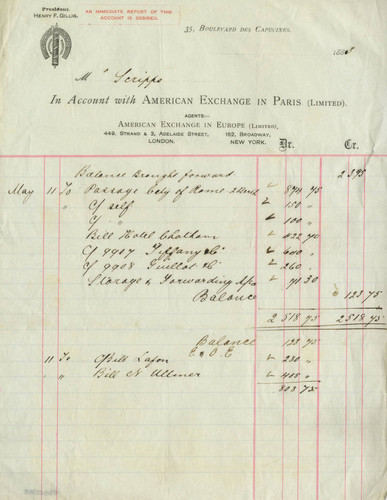 President
HENRY F. GILLIG.
AN IMMEDIATE REPORT OF THIS
ACCOUNT IS DESIRED.
35, BOULEVARD DES CAPUCINES.
188
Mr Scripps
In Account with AMERICAN EXCHANGE IN PARIS (LIMITED).
AGENTS:—
AMERICAN EXCHANGE IN EUROPE (LIMITED),
449, STRAND & 3, ADELAIDE STREET, 162, BROADWAY,
LONDON. NEW YORK.
Dr. Cr.
Balance Brought forward 2395
May 11 To Passage City of Rome 874 75
" C/ self 150 "
C/ " 100 "
Bill Hotel Chatham 422 70
C/ 9907 Tiffany & Co 600 "
C/ 9908 Guillot & Co 260 "
Storage & Forwarding 71.30
Balance " 123.75
2518 75 2518.75
Balance 123 75
E & O. E
11 To Bill Lafon 280 "
" Bill N Ullmer 400 "
803 75